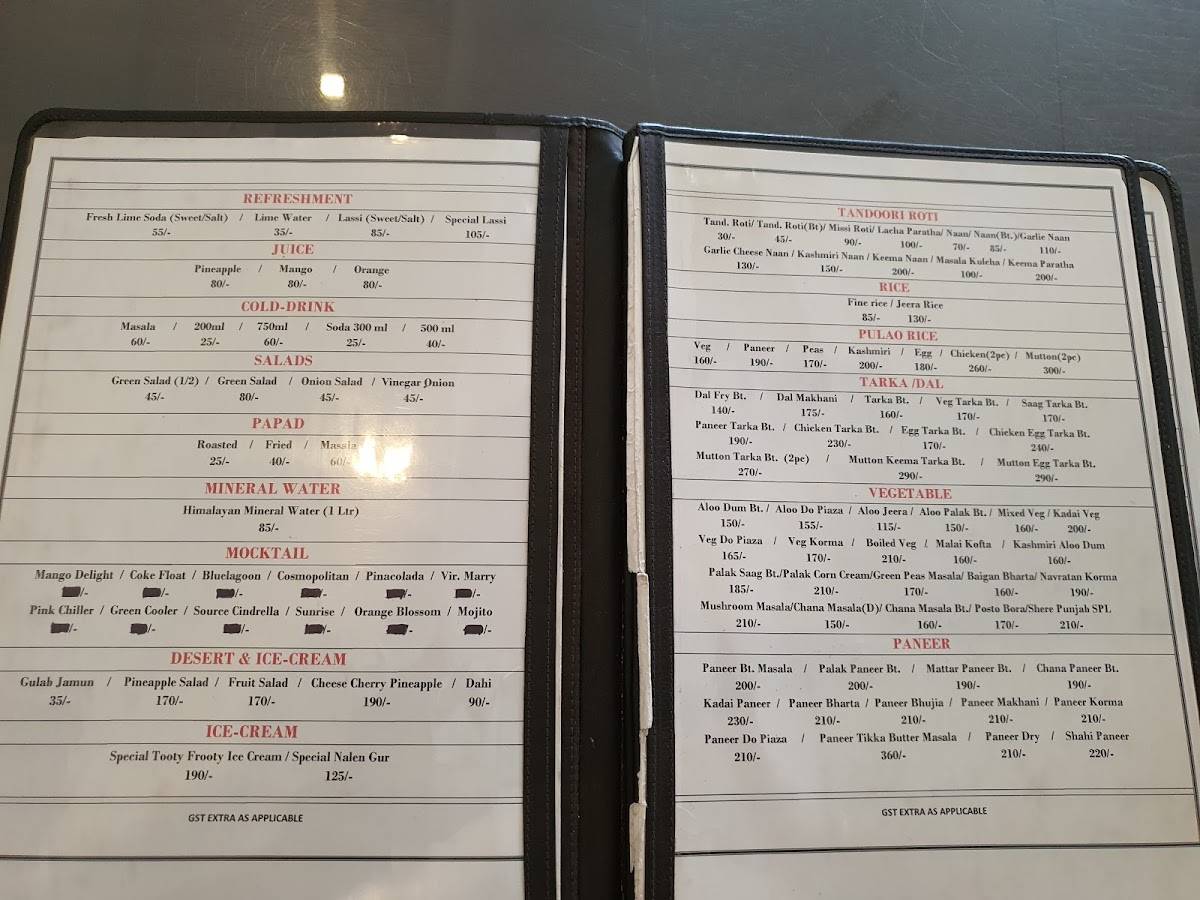 REFRESHMENT
Fresh Lime Soda (Sweet/Salt) / Lime Water / Lassi (Sweet/Salt) / Special Lassi
55/- 35/- 85/- 105/-
JUICE
Pineapple / Mango / Orange
80/- 80/- 80/-
COLD-DRINK
Masala / 200ml / 750ml / Soda 300 ml / 500 ml
60/- 25/- 60/- 25/- 40/-
SALADS
Green Salad (1/2) / Green Salad / Onion Salad / Vinegar Onion
45/- 80/- 45/- 45/-
PAPAD
Roasted / Fried / Masala
25/- 40/- 60/-
MINERAL WATER
Himalayan Mineral Water (1 Ltr)
85/-
MOCKTAIL
Mango Delight / Coke Float / Bluelagoon / Cosmopolitan / Pinacolada / Vir. Marry
/- /- /- /- /- /-
Pink Chiller / Green Cooler / Source Cindrella / Sunrise / Orange Blossom / Mojito
/- /- /- /- /- /-
DESERT & ICE-CREAM
Gulab Jamun / Pineapple Salad / Fruit Salad / Cheese Cherry Pineapple / Dahi
35/- 170/- 170/- 190/- 90/-
ICE-CREAM
Special Tooty Frooty Ice Cream / Special Nalen Gur
190/- 125/-
GST EXTRA AS APPLICABLE
TANDOORI ROTI
Tand. Roti/ Tand. Roti(Bt)/ Missi Roti/ Lacha Paratha/ Naan/ Naan(Bt.)/Garlic Naan
30/- 45/- 90/- 100/- 70/- 85/- 110/-
Garlic Cheese Naan / Kashmiri Naan / Keema Naan / Masala Kulcha / Keema Paratha
130/- 150/- 200/- 100/- 200/-
RICE
Fine rice / Jeera Rice
85/- 130/-
PULAO RICE
Veg / Paneer / Peas / Kashmiri / Egg / Chicken(2pc) / Mutton(2pc)
160/- 190/- 170/- 200/- 180/- 260/- 300/-
TARKA /DAL
Dal Fry Bt. / Dal Makhani / Tarka Bt. / Veg Tarka Bt. / Saag Tarka Bt.
140/- 175/- 160/- 170/- 170/-
Paneer Tarka Bt. / Chicken Tarka Bt. / Egg Tarka Bt. / Chicken Egg Tarka Bt.
190/- 230/- 170/- 240/-
Mutton Tarka Bt. (2pc) / Mutton Keema Tarka Bt. / Mutton Egg Tarka Bt.
270/- 290/- 290/-
VEGETABLE
Aloo Dum Bt. / Aloo Do Piaza / Aloo Jeera / Aloo Palak Bt. / Mixed Veg / Kadai Veg
150/- 155/- 115/- 150/- 160/- 200/-
Veg Do Piaza / Veg Korma / Boiled Veg / Malai Kofta / Kashmiri Aloo Dum
165/- 170/- 210/- 160/- 160/-
Palak Saag Bt./Palak Corn Cream/Green Peas Masala/ Baigan Bharta/ Navratan Korma
185/- 210/- 170/- 160/- 190/-
Mushroom Masala/Chana Masala(D)/ Chana Masala Bt./ Posto Bora/Shere Punjab SPL
210/- 150/- 160/- 170/- 210/-
PANEER
Paneer Bt. Masala / Palak Paneer Bt. / Mattar Paneer Bt. / Chana Paneer Bt.
200/- 200/- 190/- 190/-
Kadai Paneer / Paneer Bharta / Paneer Bhujia / Paneer Makhani / Paneer Korma
230/- 210/- 210/- 210/- 210/-
Paneer Do Piaza / Paneer Tikka Butter Masala / Paneer Dry / Shahi Paneer
210/- 360/- 210/- 220/-
GST EXTRA AS APPLICABLE